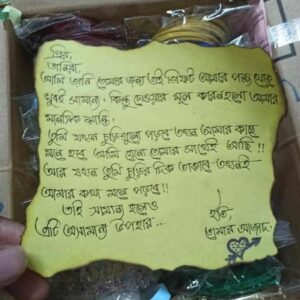 প্রিয়,
তানিয়া,
আমি জানি তোমার জন্য এই গিফট আমার পক্ষ থেকে
খুবই সামান্য। কিন্তু দেওয়ার মূল কারন হলো আমার
মানসিক শান্তি।
তুমি যখন চুড়িগুলো পড়বে তখন আমার কাছে
মনে হবে আমি হেনো তোমার সাথেই আছি !!
আর যখন তুমি চুড়ির দিক তাকাবে তখনই
আমার কথা মনে পড়বে !!
তাই সামান্য হলেও
এটি অসামান্য উপহার ....
ইতি,
তোমার আজাদ.